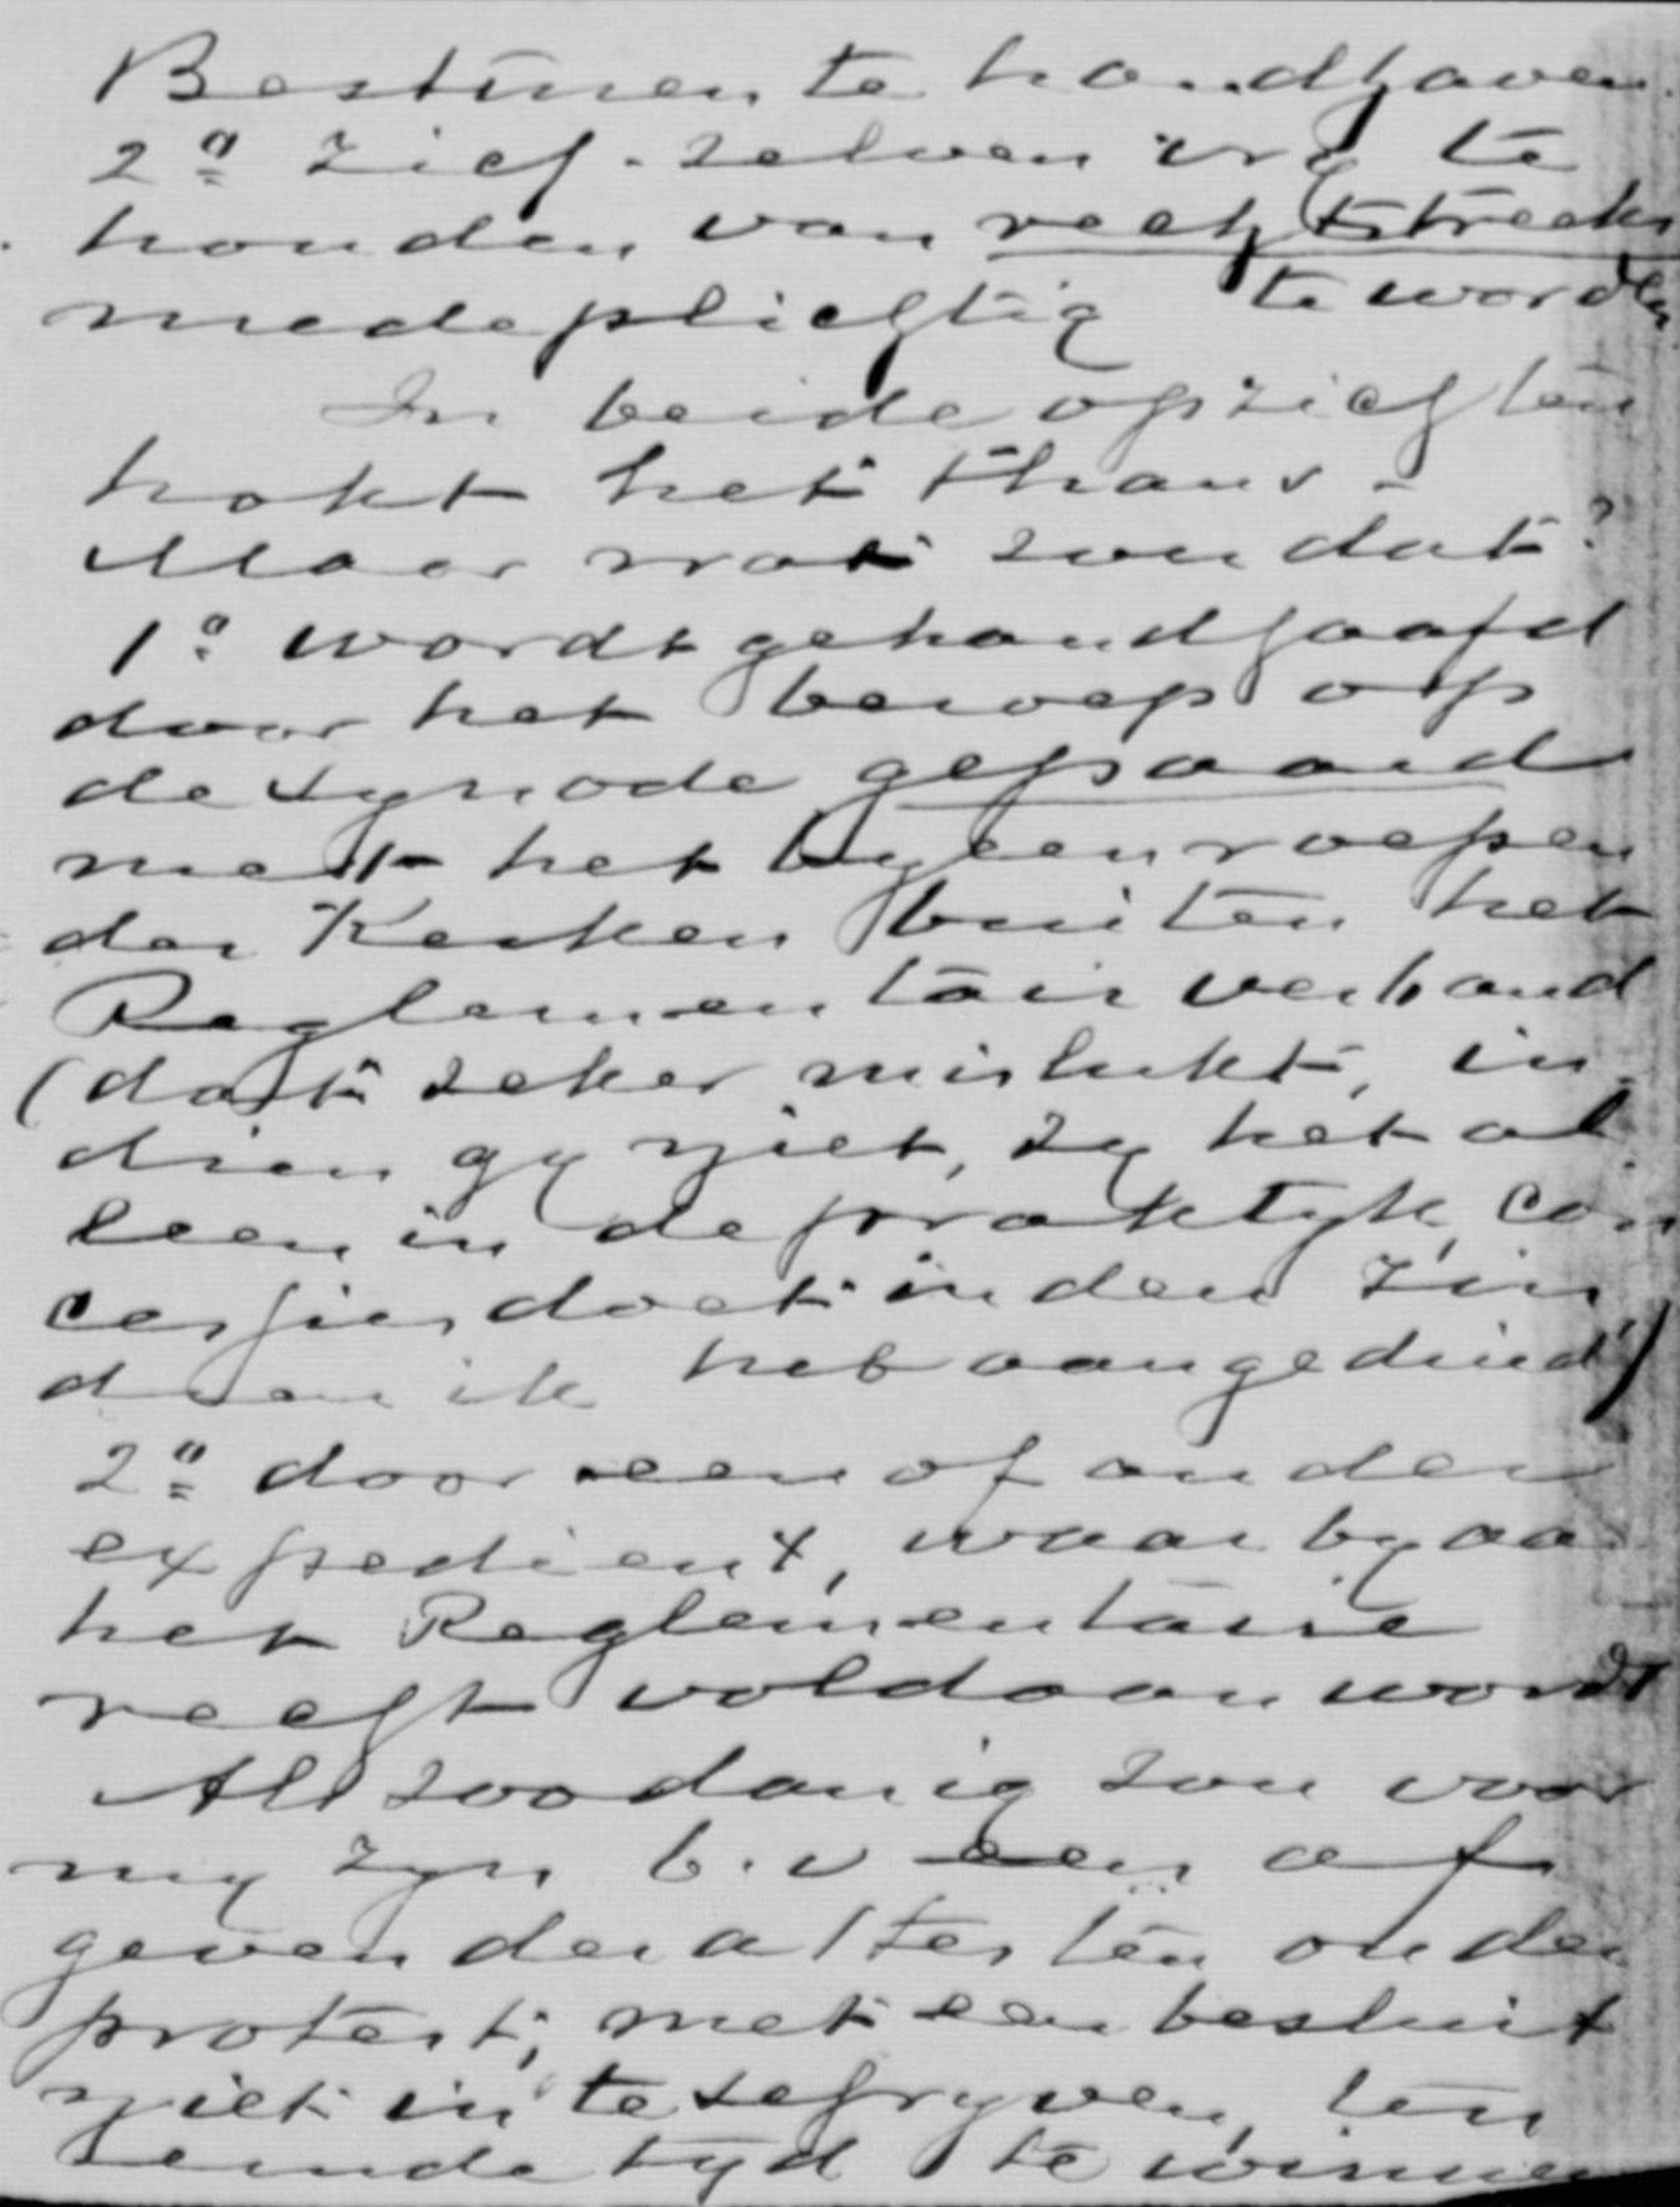 Besturen te handhaven.
2º zich-zelven vrij te
houden van rechtstreeks
medeplichtig te worden
In beide opzichten
hokt het thans.
Maar wat zou dat?
1º wordt gehandhaafd
door het beroep op
de synode gepaard
met het byeenroepen
der Kerken buiten het
Reglementair verband
(dat zeker mislukt, in-
dien gy niet, zy het al-
leen in de praktyk, con
cessies doet in den zin
dien ik heb aangeduid)
2º door een of ander
expedient, waarby aan
het Reglementaire
recht voldaan wordt
Als zoodanig zou voor
my zyn b.v een af
geven der attesten onder
protest; met een besluit
niet in te schryven, ten
einde tyd te winnen